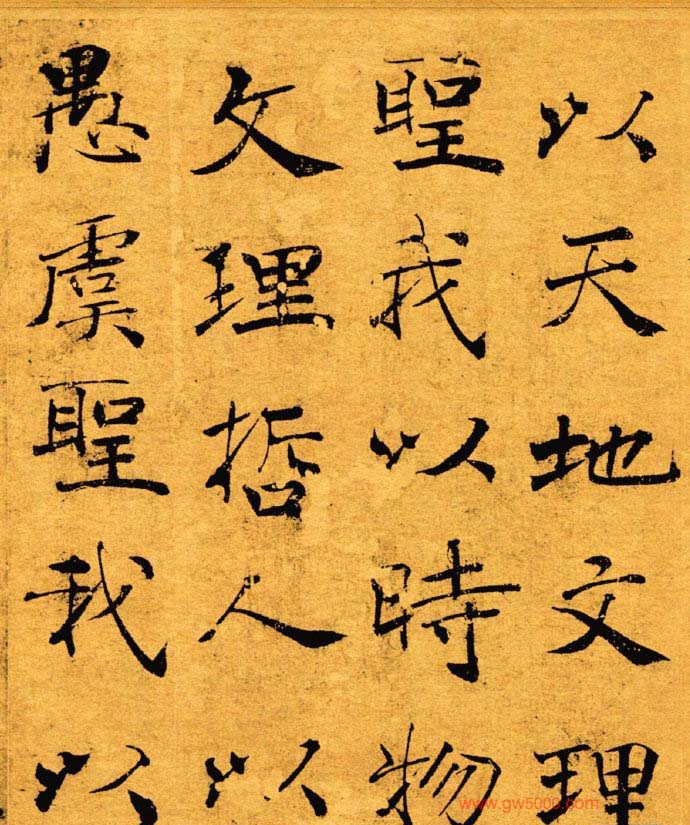 以天地文理
聖我以時物
文理哲人以
愚虞聖我以
www.gw5000.com